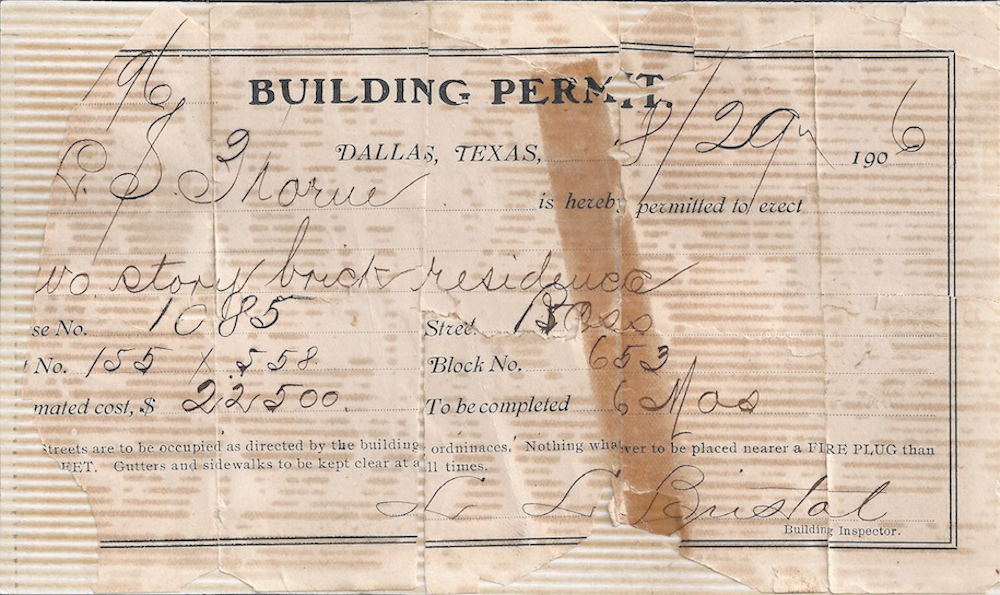 96
BUILDING PERMIT.
DALLAS, TEXAS, 8/29 1906
L. S. Thorne is hereby permitted to erect
wo story brick residence
se No. 1085 Street Ross
No. 155 X 558 Block No. 653
mated cost, $ 22500 To be completed 6 Mos
Streets are to be occupied as directed by the building ordninaces. Nothing whatever to be placed nearer a FIRE PLUG than
EET. Gutters and sidewalks to be kept clear at all times.
L L Bristol
Building Inspector.